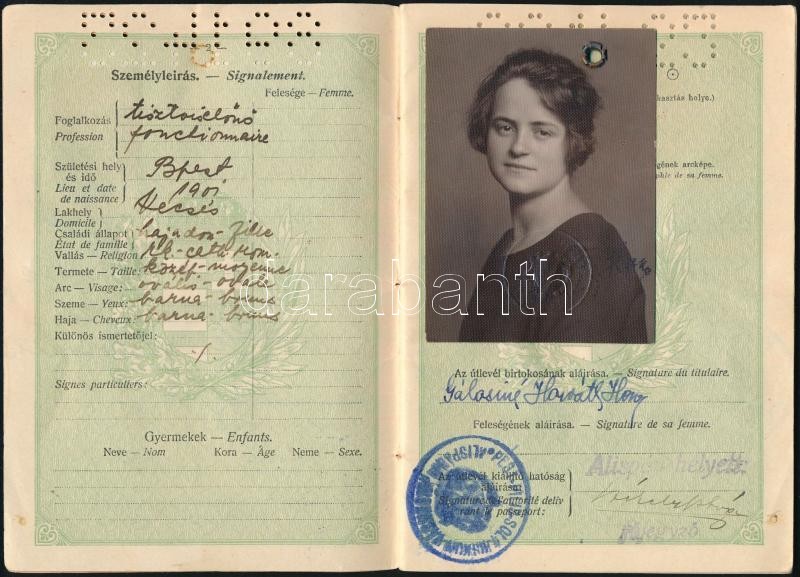 — 2 —
Személyleírás. — Signalement.
Felesége — Femme.
Foglalkozás tisztviselőnő
Profession fonctionnaire
Születési hely és idő Bpest
Lieu et date de naissance 1901
Lakhely Vecsés
Domicile
Családi állapot hajadon - fille
État de famille
Vallás — Religion rk. - cath. rom.
Termete — Taille: közép - moyenne
Arc — Visage: ovális - ovale
Szeme — Yeux: barna - bruns
Haja — Cheveux: barna - bruns
Különös ismertetőjel:
./.
Signes particuliers:
Gyermekek — Enfants.
Neve — Nom Kora — Âge Neme — Sexe.
kasztás helye.)
gének arcképe.
phie de sa femme.
darabanth
Az útlevél birtokosának aláírása. — Signature du titulaire.
Gálosiné Horváth
Feleségének aláírása. — Signature de sa femme.
Alispán helyett:
Az útlevél kiállító hatóság
aláírása:
Signature de l'autorité déliv
rant le passeport:
főjegyző